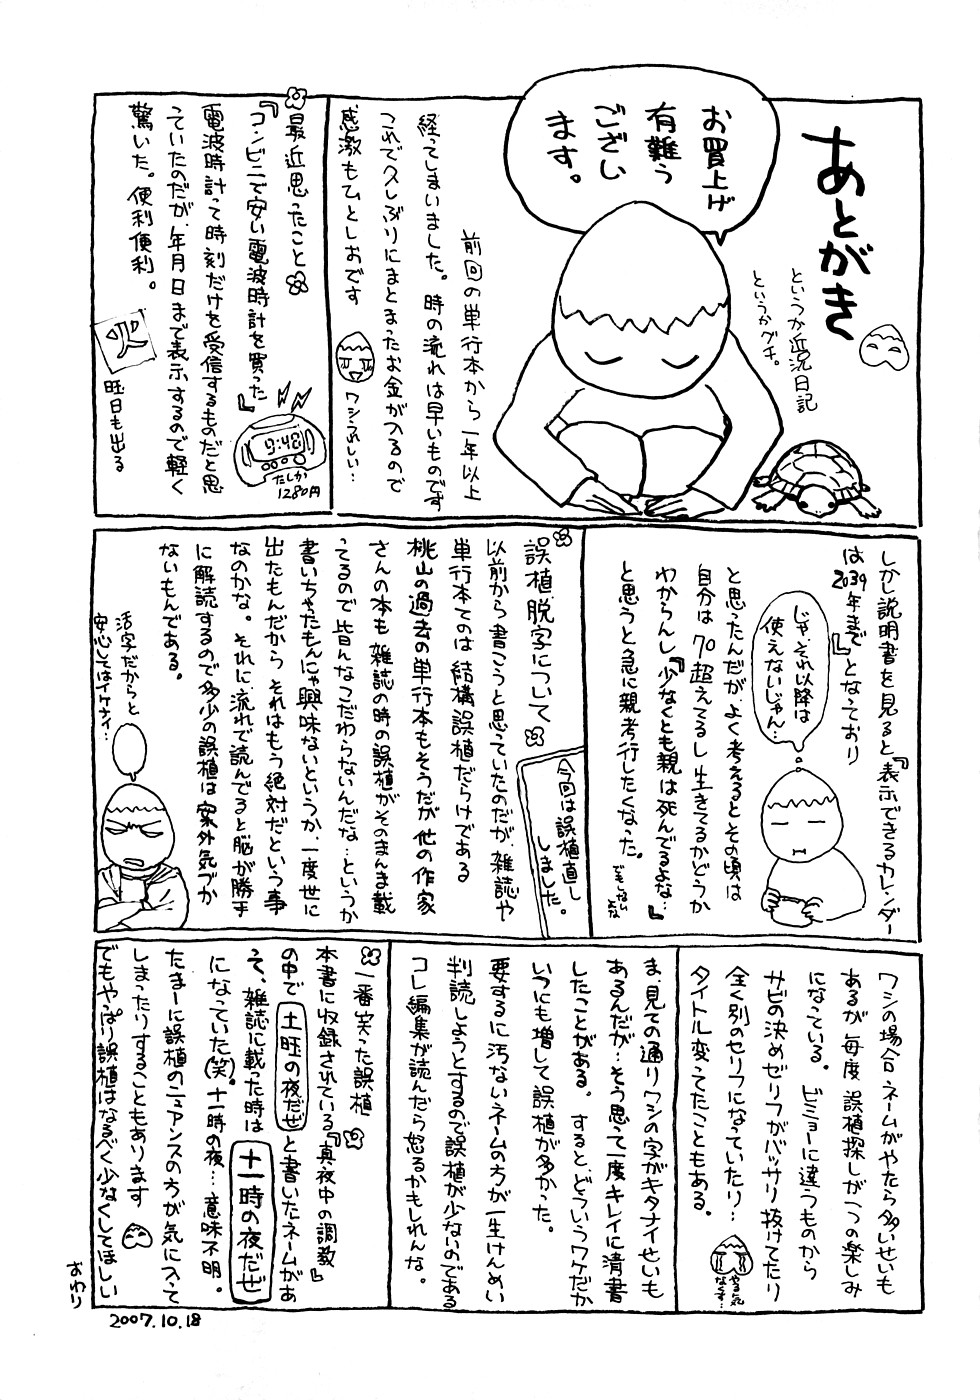 あとがき
というか近況日記
というかグチ。
お買上げ
有難う
ござい
ます。
前回の単行本から一年以上
経ってしまいました。時の流れは早いものです
これで久しぶりにまとまったお金が入るので
感激もひとしおです
ワシうれしい…
最近思ったこと
『コンビニで安い電波時計を買った』
電波時計って時刻だけを受信するものだと思
っていたのだが、年月日まで表示するので軽く
驚いた。便利便利。
9:48
たしか
1280円
火
曜日も出る
しかし説明書を見ると『表示できるカレンダー
は2039年まで』となっており
じゃ、それ以降は
使えないじゃん…
と思ったんだが、よく考えるとその頃は
自分は70超えてるし生きてるかどうか
わからんし『少なくとも親は死んでるよな…』
と思うと急に親孝行したくなった。
誤植脱字について
今回は誤植直し
しました。
以前から書こうと思っていたのだが、雑誌や
単行本てのは結構誤植だらけである
桃山の過去の単行本もそうだが他の作家
さんの本も雑誌の時の誤植がそのまんま載
ってるので皆んなこだわらないんだな…というか
書いちゃたもんにゃ興味ないというか、一度世に
出たもんだからそれはもう絶対だという事
なのかな。それに流れで読んでると脳が勝手
に解読するので多少の誤植は案外気づか
ないもんである。
活字だからと
安心してはイケナイ…
ワシの場合ネームがやたら多いせいも
あるが毎度誤植探しが一つの楽しみ
になっている。ビミョーに違うものから
サビの決めゼリフがバッサリ抜けてたり
全く別のセリフになっていたり…
タイトル変ってたこともある。
やる気
なくす…
ま、見ての通りワシの字がキタナイせいも
あるんだが…そう思って一度キレイに清書
したことがある。すると、どういうワケだか
いつにも増して誤植が多かった。
要するに汚ないネームの方が一生けんめい
判読しようとするので誤植が少ないのである
コレ編集が読んだら怒るかもしれんな。
一番笑った誤植
本書に収録されている『真夜中の調教』
の中で 土旺の夜だぜ と書いたネームがあ
って、雑誌に載った時は 十一時の夜だぜ
になっていた(笑)。十一時の夜…意味不明。
たまーに誤植のニュアンスの方が気に入って
しまったりすることもあります
でもやっぱり誤植はなるべく少なくしてほしい
おわり
2007.10.18